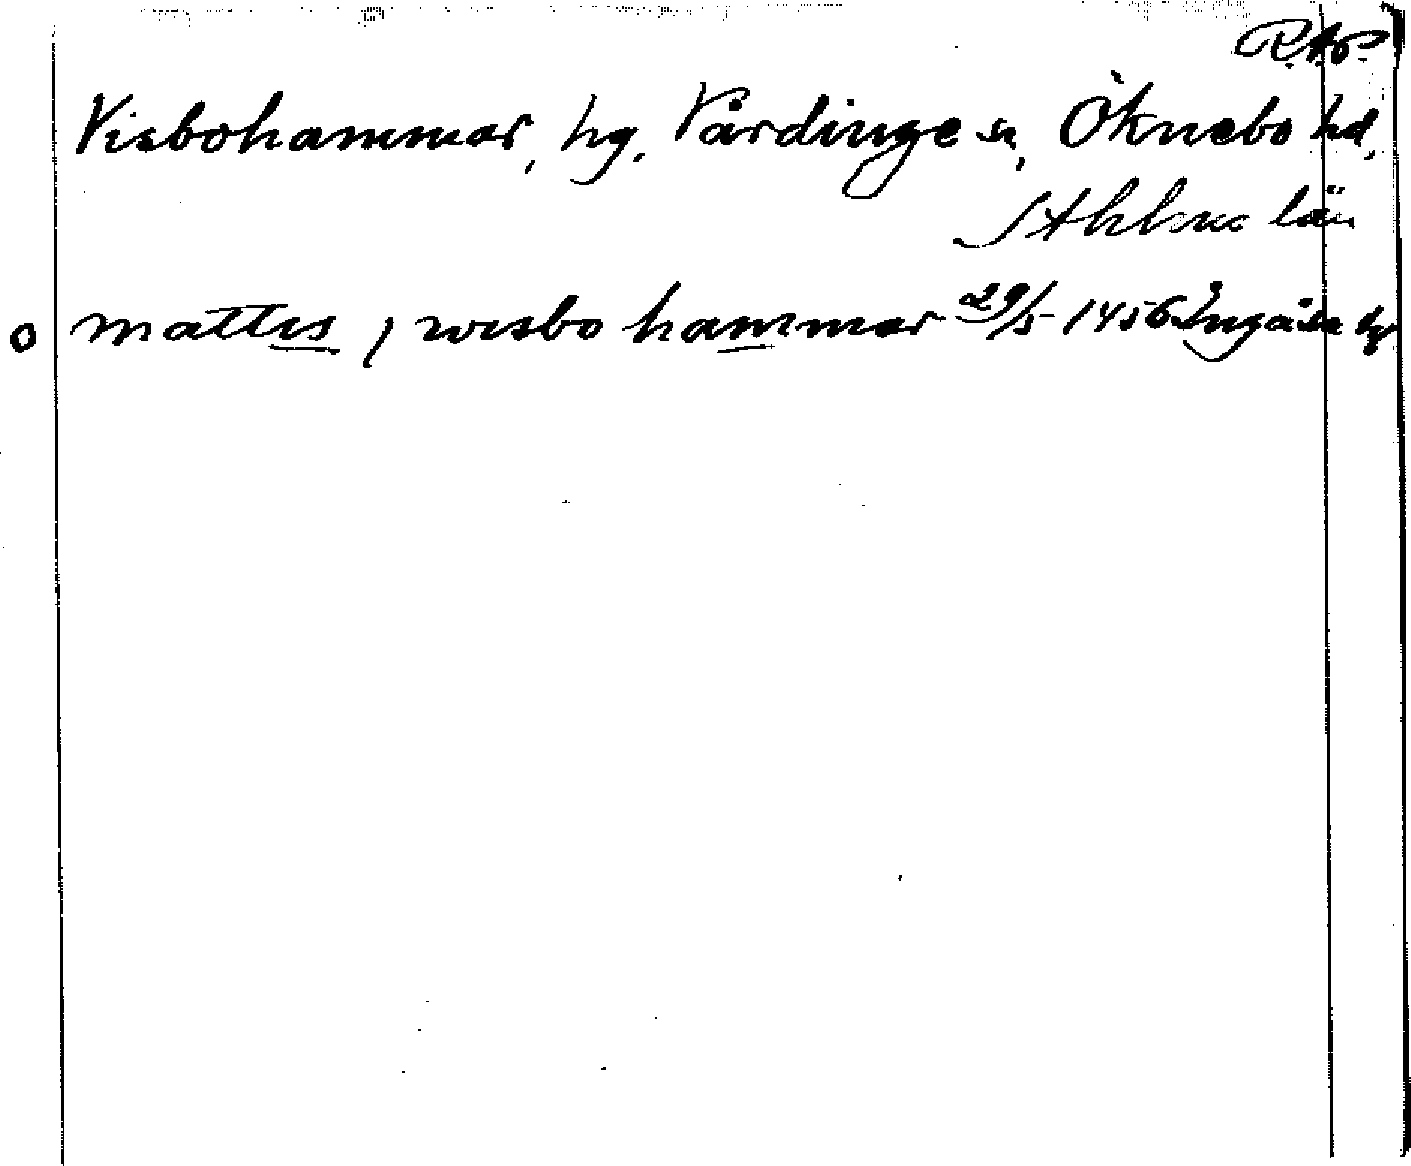 R.A.P.
Visbohammar, hg, Vårdinge sn, Öknebo hd,
Sthlms län
o mattis j wisbo hammar 29/5 1456